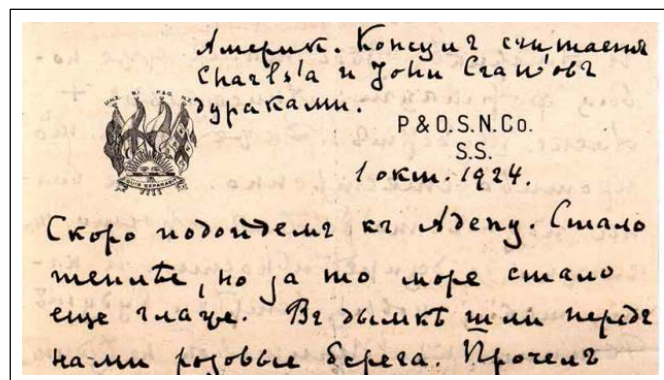 Америк. Консулъ считаетъ
Charls'а и John Cran'овъ
дураками.
P & O. S. N. Co.
S.S.
QUIS SEPARABIT
1 окт. 1924.
Скоро подойдемъ къ Адену. Стало
теплѣе, но за то море стало
еще глаже. Въ дымкѣ шли передъ
нами розовые берега. Прочелъ